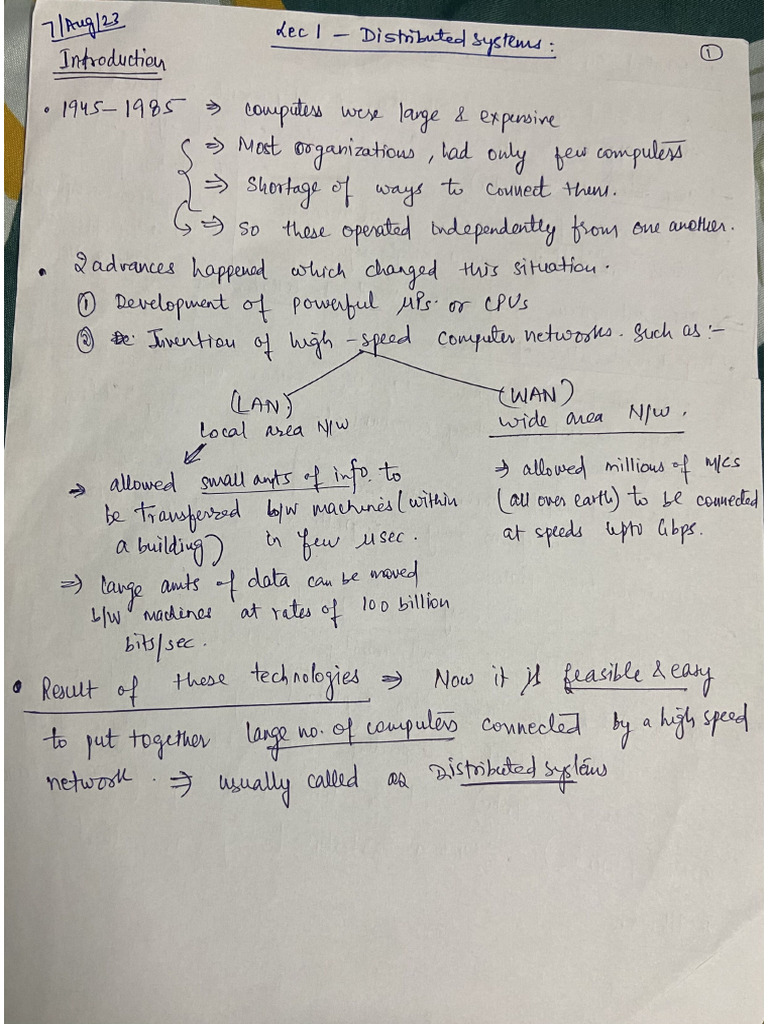 7/Aug/23
Lec 1 – Distributed Systems :
①
Introduction
• 1945–1985 ⇒ computers were large & expensive
⇒ Most organizations, had only few computers
⇒ Shortage of ways to connect them.
⇒ so these operated independently from one another.
• 2 advances happened which changed this situation.
① Development of powerful μPs. or CPUs
② Invention of high-speed computer networks. Such as :–
(LAN)
Local area N/W
⇒ allowed small amts of info. to
be transferred b/w machines (within
a building) in few μsec.
⇒ large amts of data can be moved
b/w machines at rates of 100 billion
bits/sec.
(WAN)
wide area N/W.
⇒ allowed millions of M/CS
(all over earth) to be connected
at speeds upto Gbps.
• Result of these technologies ⇒ Now it is feasible & easy
to put together large no. of computers connected by a high speed
network. ⇒ usually called as Distributed systems